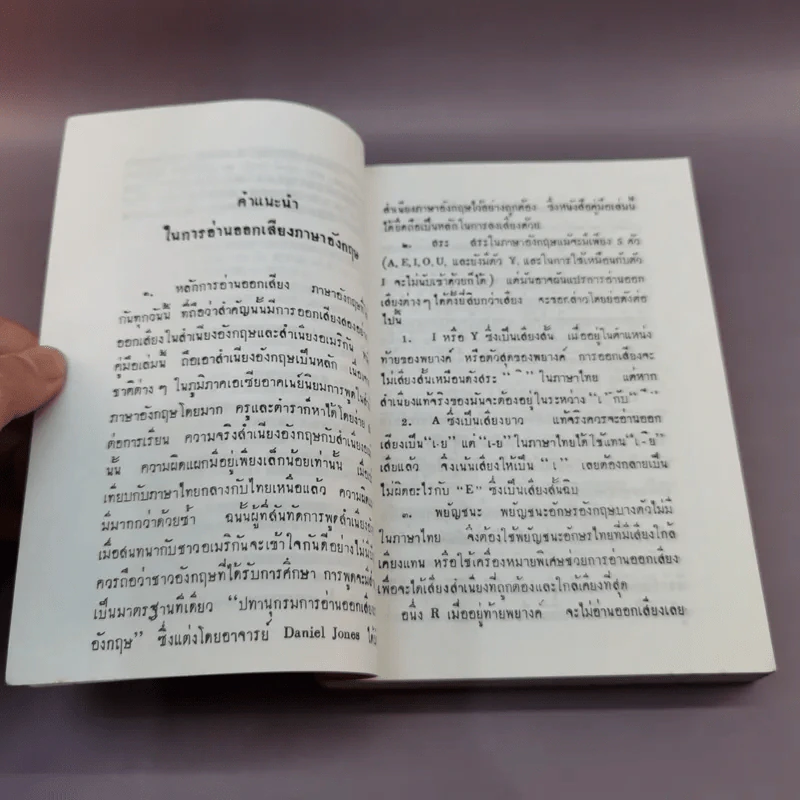 คำแนะนำ
ในการอ่านออกเสียงภาษาอังกฤษ
๑. หลักการอ่านออกเสียง ภาษาอังกฤษที่
กันทุกวันนี้ ที่ถือว่าสำคัญนั้นมีการออกเสียงสองอย่าง
ออกเสียงในสำเนียงอังกฤษและสำเนียงอเมริกัน
คู่มือเล่มนี้ ถือเอาสำเนียงอังกฤษเป็นหลัก เนื่องจาก
ชาติต่าง ๆ ในภูมิภาคเอเซียอาคเนย์นิยมการพูดใน
ภาษาอังกฤษโดยมาก ครูและตำราก็หาได้โดยง่าย
ต่อการเรียน ความจริงสำเนียงอังกฤษกับสำเนียง
นั้น ความผิดแผกมีอยู่เพียงเล็กน้อยเท่านั้น เมื่อ
เทียบกับภาษาไทยกลางกับไทยเหนือแล้ว ความผิด
มีมากกว่าด้วยซ้ำ ฉนั้นผู้ที่สันทัดการพูดสำเนียง
เมื่อสนทนากับชาวอเมริกันจะเข้าใจกันดีอย่างไม่มี
ควรถือว่าชาวอังกฤษที่ได้รับการศึกษา การพูดจะมี
เป็นมาตรฐานทีเดียว “ปทานุกรมการอ่านออกเสียง
อังกฤษ” ซึ่งแต่งโดยอาจารย์ Daniel Jones ได้
สำเนียงภาษาอังกฤษไว้อย่างถูกต้อง ซึ่งหนังสือคู่มือเล่มนี้
ได้ยึดถือเป็นหลักในการลงเสียงด้วย
๒. สระ สระในภาษาอังกฤษแม้จะมีเพียง ๕ ตัว
(A, E, I, O, U, และยังมีตัว Y, และในการใช้เหมือนกับตัว
I จะไม่นับเข้าด้วยก็ได้) แต่มันอาจผันแปรการอ่านออก
เสียงต่างๆ ได้ตั้งยี่สิบกว่าเสียง จะขอกล่าวโดยย่อดังต่อ
ไปนี้
1. I หรือ Y ซึ่งเป็นเสียงสั้น เมื่ออยู่ในตำแหน่ง
ท้ายของพยางค์ หรือตัวสุดของพยางค์ การออกเสียงจะ
ไม่เสียงสั้นเหมือนดังสระ “ ิ” ในภาษาไทย แต่หาก
สำเนียงแท้จริงของมันจะต้องอยู่ในระหว่าง “เ ็กับ ิ”
2. A ซึ่งเป็นเสียงยาว แท้จริงควรจะอ่านออก
เสียงเป็น “เ-ย” แต่ “เ-ย” ในภาษาไทยได้ใช้แทน “เ-ีย”
เสียแล้ว จึงเน้นเสียงให้เป็น “เ” เลยต้องกลายเป็น
ไม่ผิดอะไรกับ “E” ซึ่งเป็นเสียงสั้นฉิบ
๓. พยัญชนะ พยัญชนะอักษรอังกฤษบางตัวไม่มี
ในภาษาไทย จึงต้องใช้พยัญชนะอักษรไทยที่มีเสียงใกล้
เคียงแทน หรือใช้เครื่องหมายพิเศษช่วยการอ่านออกเสียง
เพื่อจะได้เสียงสำเนียงที่ถูกต้องและใกล้เคียงที่สุด
อนึ่ง R เมื่ออยู่ท้ายพยางค์ จะไม่อ่านออกเสียงเลย